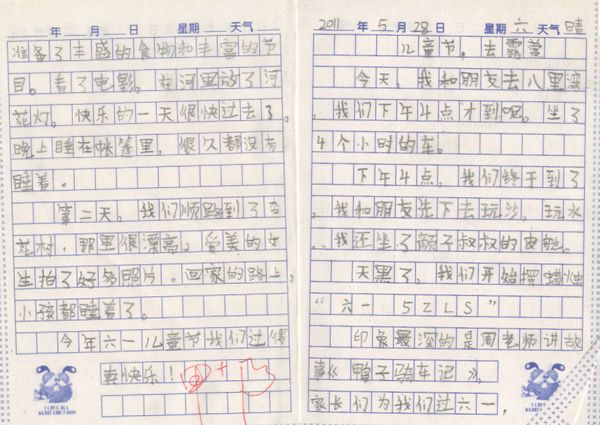 2011年5月28日 星期六 天气晴
儿童节,去露营
今天,我和朋友去八里湾
,我们下午4点才到呢。坐了
4个小时的车。
下午4点,我们终于到了
,我和朋友先下去玩沙,玩水
,我还坐了颜子叔叔的皮艇。
天黑了,我们开始摆蜡烛
“六一 5ZLS”
印象最深的是周老师讲故
事《鸭子骑车记》,
家长们为我们过六一,
年 月 日 星期 天气
准备了丰盛的食物和丰富的节
目。看了电影。在河里放了河
花灯。快乐的一天很快过去了。
晚上睡在帐篷里,很久都没有
睡着。
第二天,我们顺路到了杏
花村,那里很漂亮,爱美的女
生拍了好多照片。回家的路上,
小孩都睡着了。
今年六一儿童节我们过得
真快乐!!